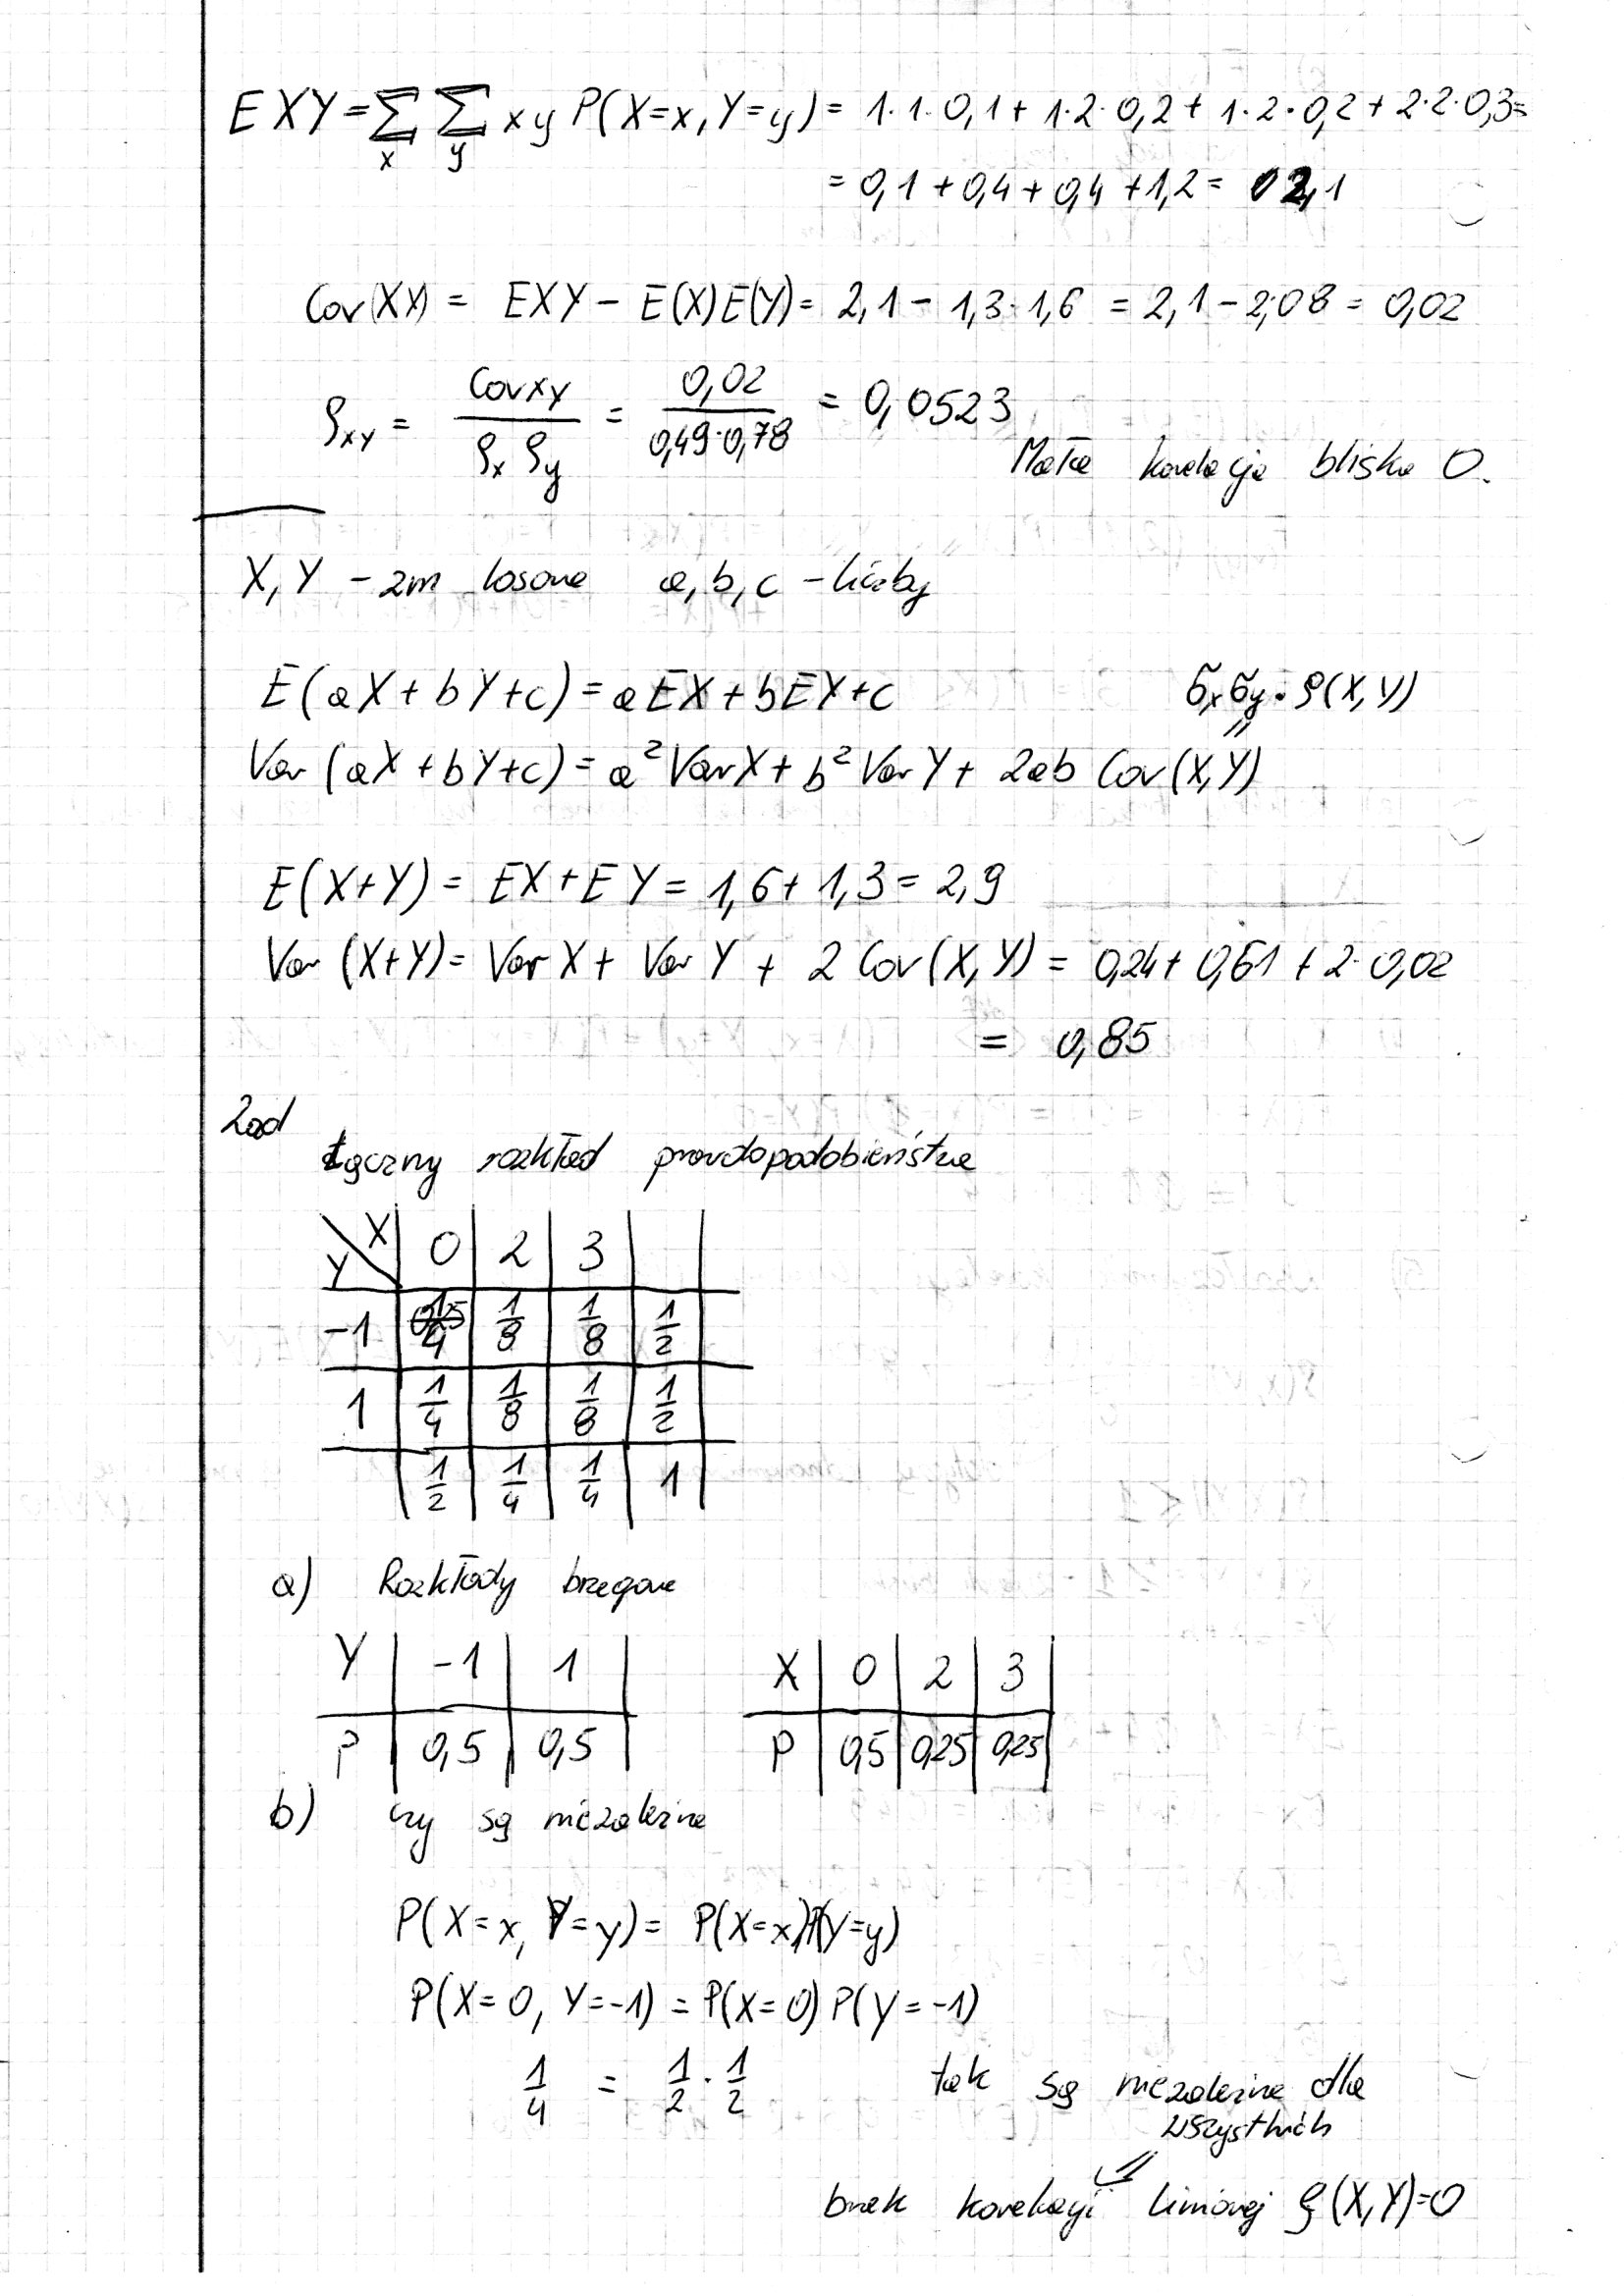 EXY = Σ Σ xy P(X=x, Y=y) = 1·1·0,1 + 1·2·0,2 + 1·2·0,2 + 2·2·0,3 =
x y
= 0,1 + 0,4 + 0,4 + 1,2 = 2,1
Cov(XY) = EXY - E(X)E(Y) = 2,1 - 1,3·1,6 = 2,1 - 2,08 = 0,02
ρxy = Cov xy / ρx ρy = 0,02 / 0,49·0,78 = 0,0523
Mała korelacja blisko 0.
X, Y - zm losowe a, b, c - liczby
E(aX + bY + c) = aEX + bEY + c
σx σy · ρ(X, Y)
||
Var (aX + bY + c) = a² VarX + b² Var Y + 2ab Cov(X, Y)
E(X+Y) = EX + EY = 1,6 + 1,3 = 2,9
Var (X+Y) = Var X + Var Y + 2 Cov(X, Y) = 0,24 + 0,61 + 2·0,02
= 0,85
Zad
Łączny rozkład prawdopodobieństwa
Y \ X | 0 | 2 | 3 |
-1 | 1/4 | 1/8 | 1/8 | 1/2
1 | 1/4 | 1/8 | 1/8 | 1/2
1/2 | 1/4 | 1/4 | 1
a) Rozkłady brzegowe
Y | -1 | 1 | X | 0 | 2 | 3
P | 0,5 | 0,5 | P | 0,5 | 0,25 | 0,25
b) czy są niezależne
P(X=x, Y=y) = P(X=x)P(Y=y)
P(X=0, Y=-1) = P(X=0) P(Y=-1)
1/4 = 1/2 · 1/2 tak są niezależne dla
wszystkich
⇓
brak korelacji liniowej ρ(X, Y)=0